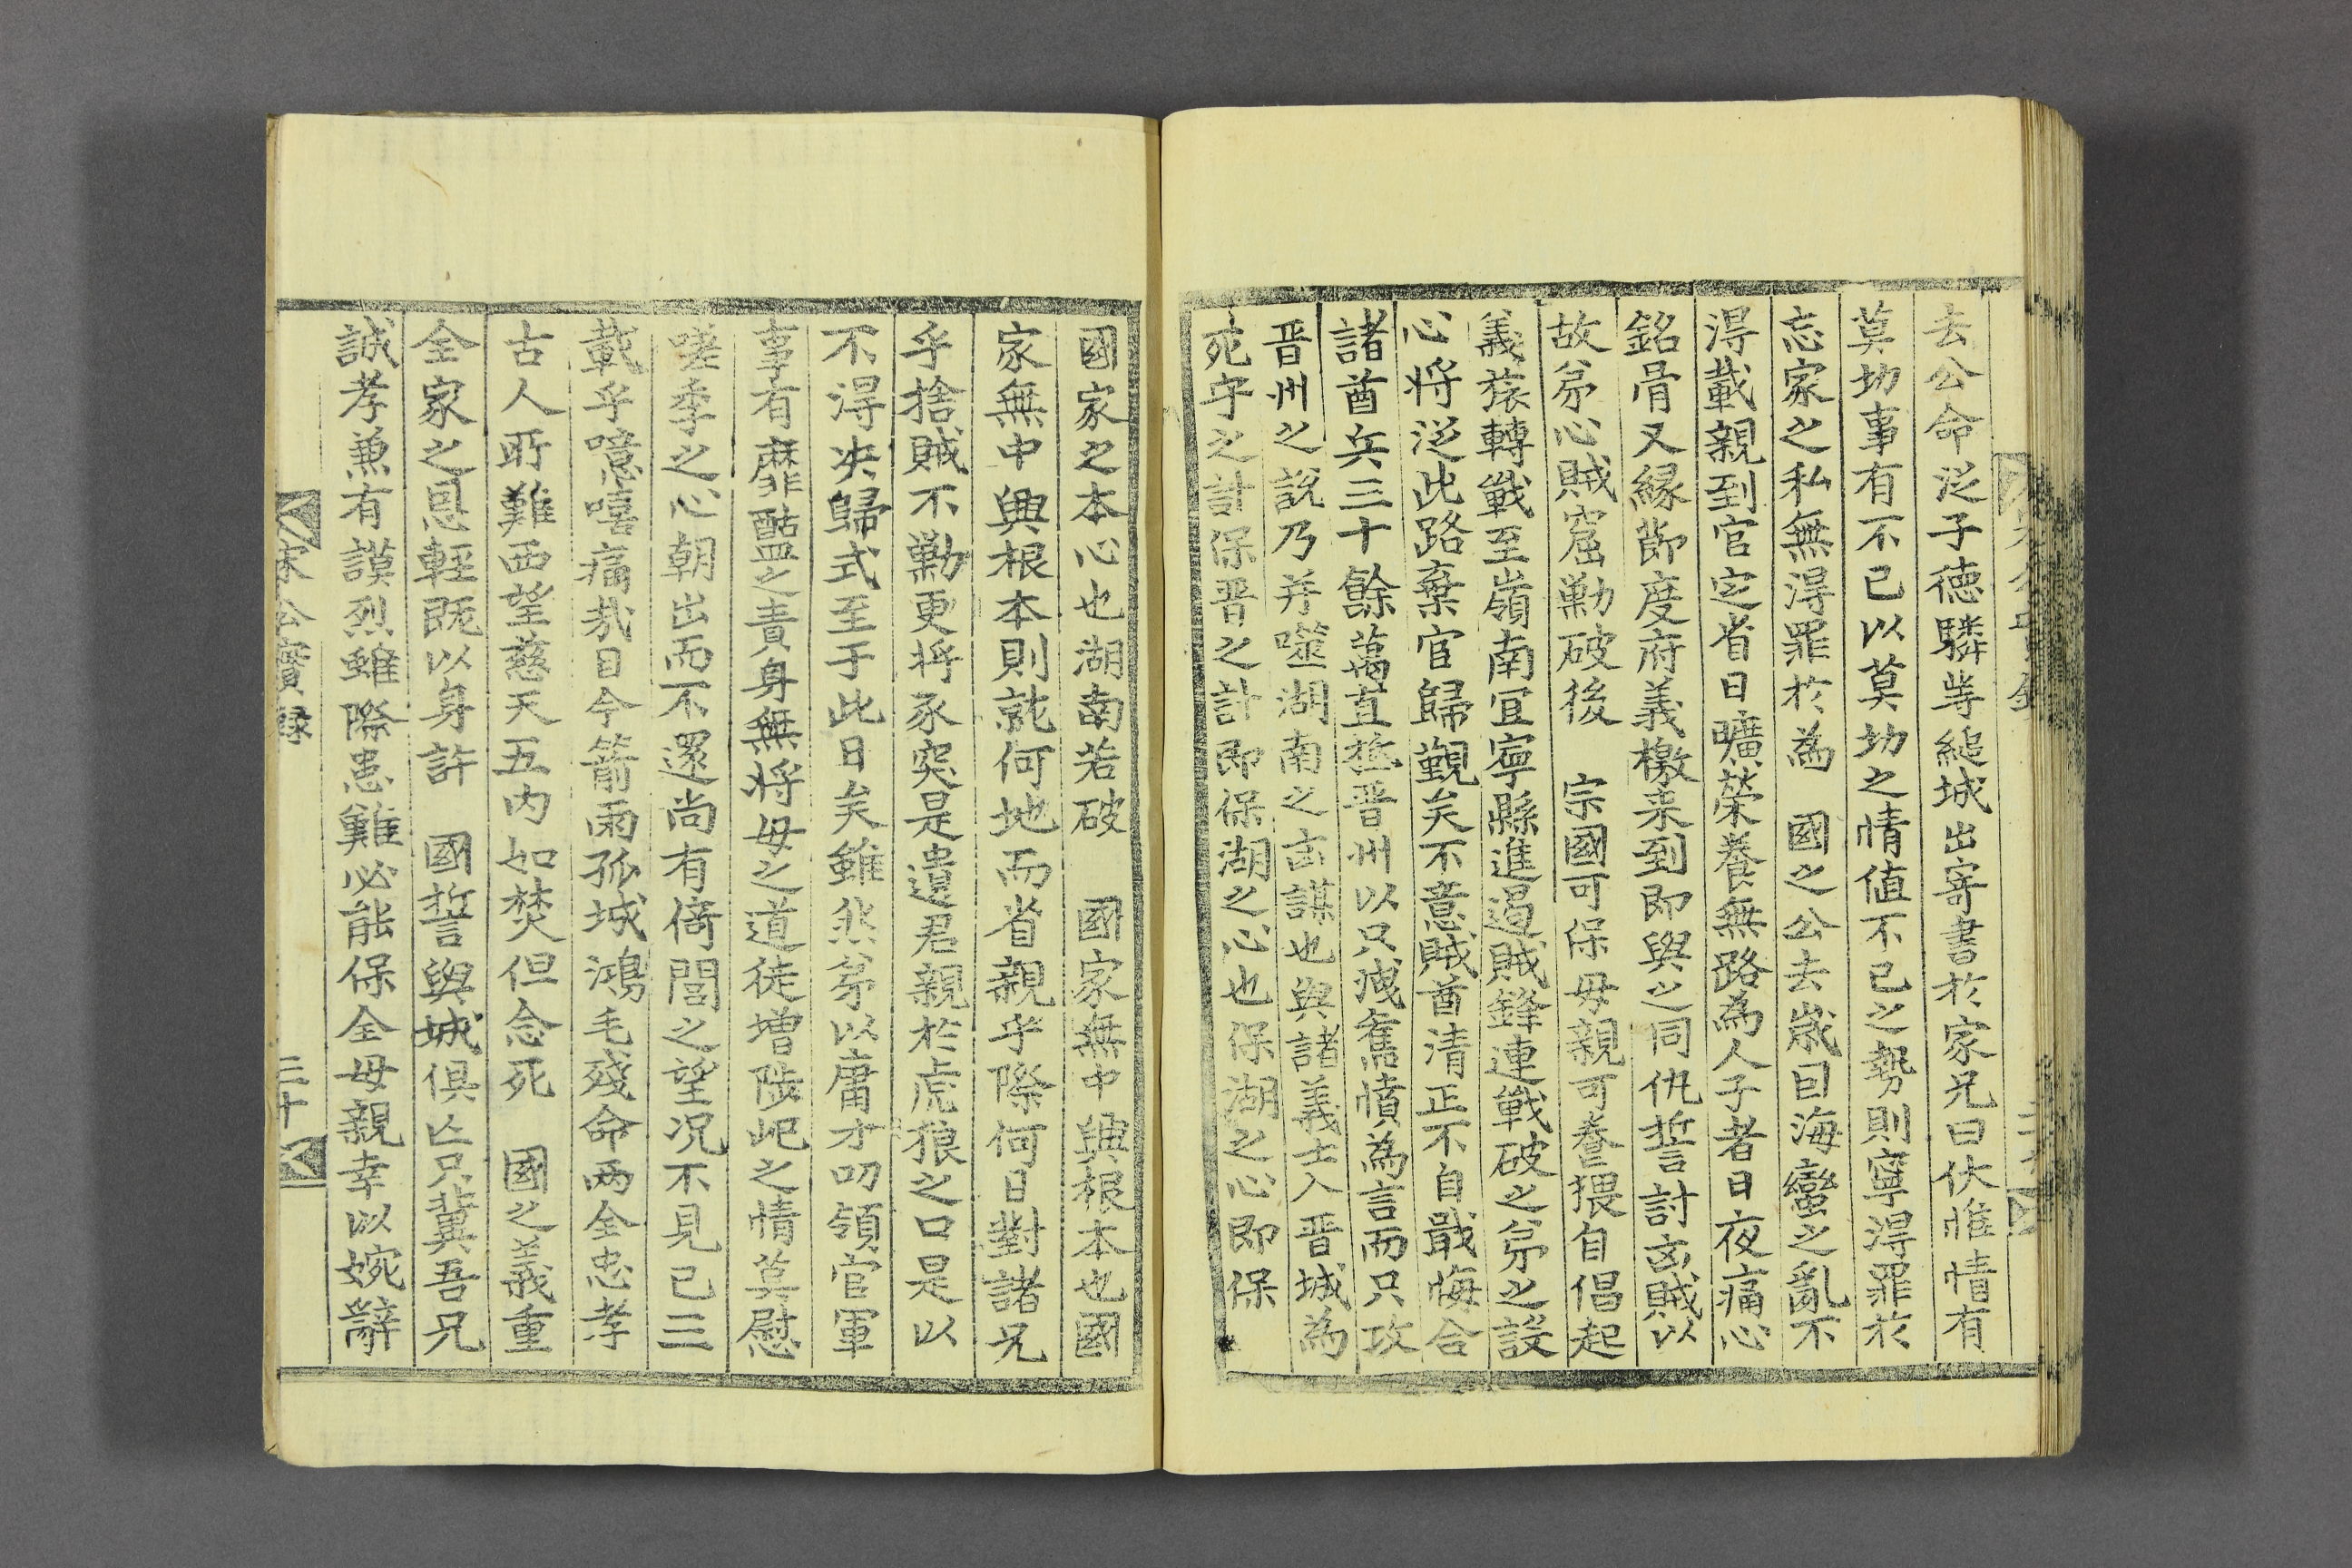 去公命泛子德驎等縋城出寄書於家兄曰伏惟情有
莫切事有不已以莫切之情値不已之勢則寧得罪於
忘家之私無淂罪於為 國之公去歲曰海蠻之亂不
淂載親到官定省日曠榮養無路為人子者日夜痛心
銘骨又緣節度府義檄来到即與之同仇誓討玄賊以
故弟心賊窟勦破後 宗國可保母親可養猥自倡起
義旅轉戰至嶺南冝寧縣進遏賊鋒連戰破之弟之設
心将泛此路棄官歸覲矣不意賊酋清正不自戢悔合
諸酋兵三十餘萬直抵晋州以只洩舊憤為言而只攻
晋州之說乃并噬湖南之玄謀也與諸義士入晋城為
死守之計保晋之計即保湖之心也保湖之心即保
國家之本心也湖南若破 國家無中興根本也國
家無中興根本則就何地而省親乎際何日對諸兄
乎捨賊不勦更将豕突是遺君親於虎狼之口是以
不淂决歸式至于此日矣雖然弟以庸才叨領官軍
事有靡盬之責身無将母之道徒增陟屺之情莫慰
嗟季之心朝出而不還尚有倚閭之望况不見已三
載乎噫嘻痛㢤目今箭雨孤城鴻毛殘命两全忠孝
古人所難西望慈天五内如焚但念死 國之義重
全家之恩輕既以身許 國誓與城俱亡只冀吾兄
誠孝兼有謨烈雖際患難必能保全母親幸以婉辭
公實録
三十